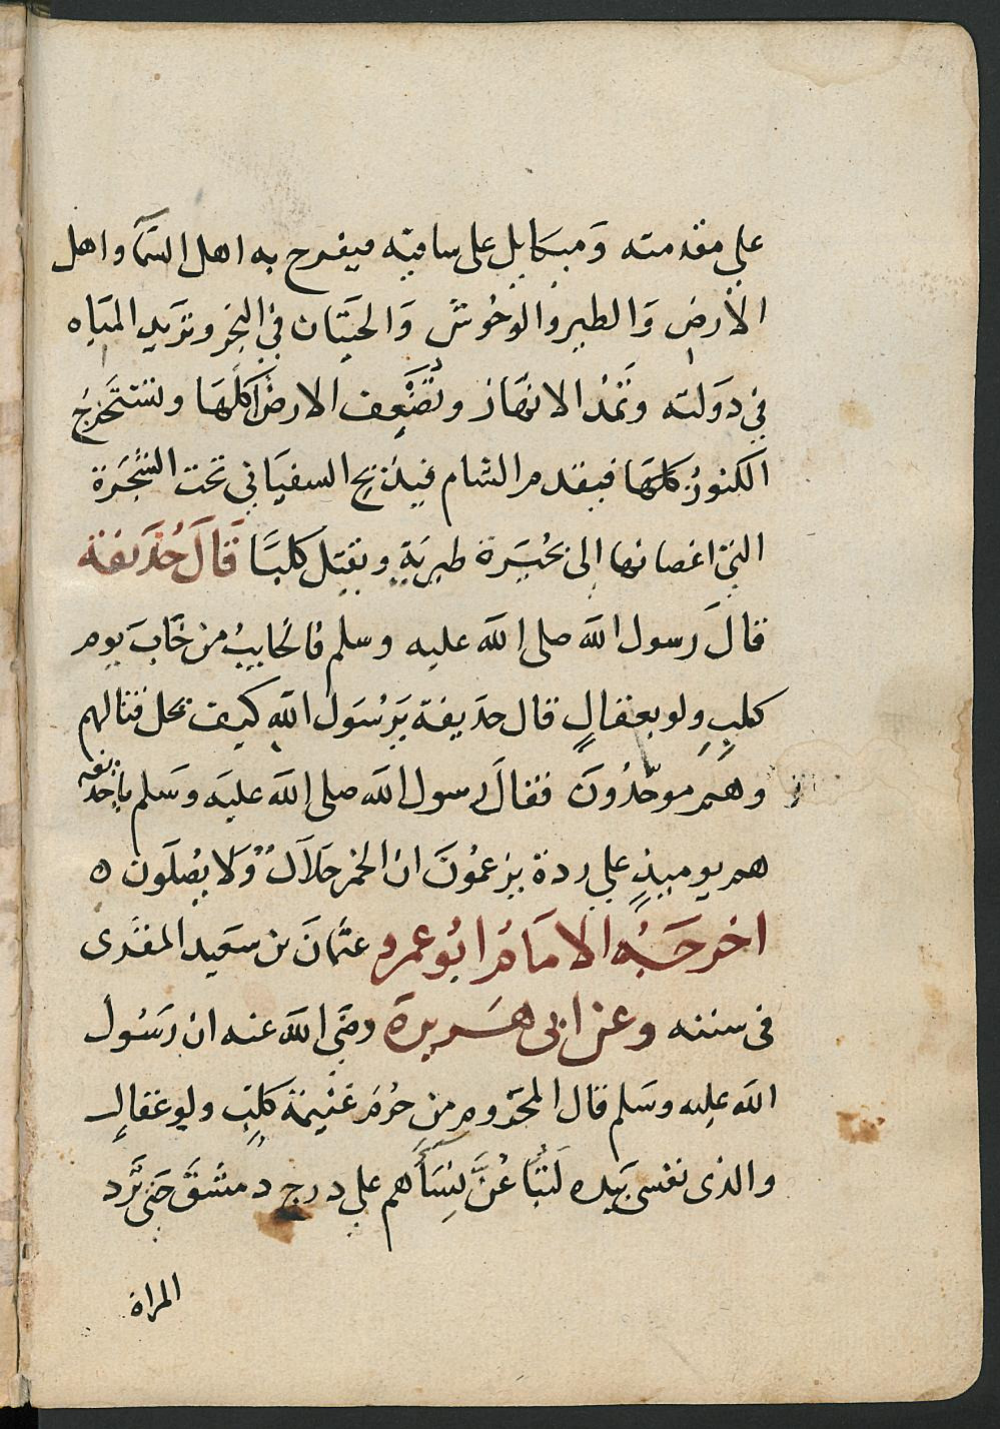 علي مقدمته وَميكايل على ساقيته فيفرح به اهل السَّمَآ واهل
الأرض وَالطير والوحُوش وَالحيَتان في البحَر وتزَيد الميَاه
في دَولته وتمَدُ الانهَار وتُضَعِف الارضُ اكلَهَا وتستَخرجُ
الكنوزُ كلهَا فيقدم الشام فيَذبح السفيَاني تحت الشجَرة
التي اغصانها إلى بحُيَرة طبرِيَةٍ ويقتِل كلبًا قَالَ حُذَيفة
قالَ رسول اللَّه صلى اللَّه عليه وسلم فالخَايبُ من خَابَ يوم
كلبٍ ولو بعقالٍ قال حذيفة يَرسُول اللَّه كيف يحل قتالهم
وهم موحّدُونَ فقالَ رسول اللَّه صلى اللَّه عليَه وَسَلم ياحذيفه
هم يوميذٍ علي ردة يزعمُونَ ان الخمر حَلاَلٌ وَلَا يصُلَون ه
اخرجَهُ الامَامُ ابُو عمرو عثمَانَ بن سَعيد المقرى
فى سننه وعن ابى هَريرةَ رضَي اللَّه عنه ان رَسُول
اللَّه عليه وسَلم قال المحَروم من حُرمَ غَنيمَة كلبٍ ولو عقالٍ
والذى نفسى بيَده لَتبُاعُنَّ نِسَآؤهم علي درج دمشقَ حَتى تُرَد
المراة